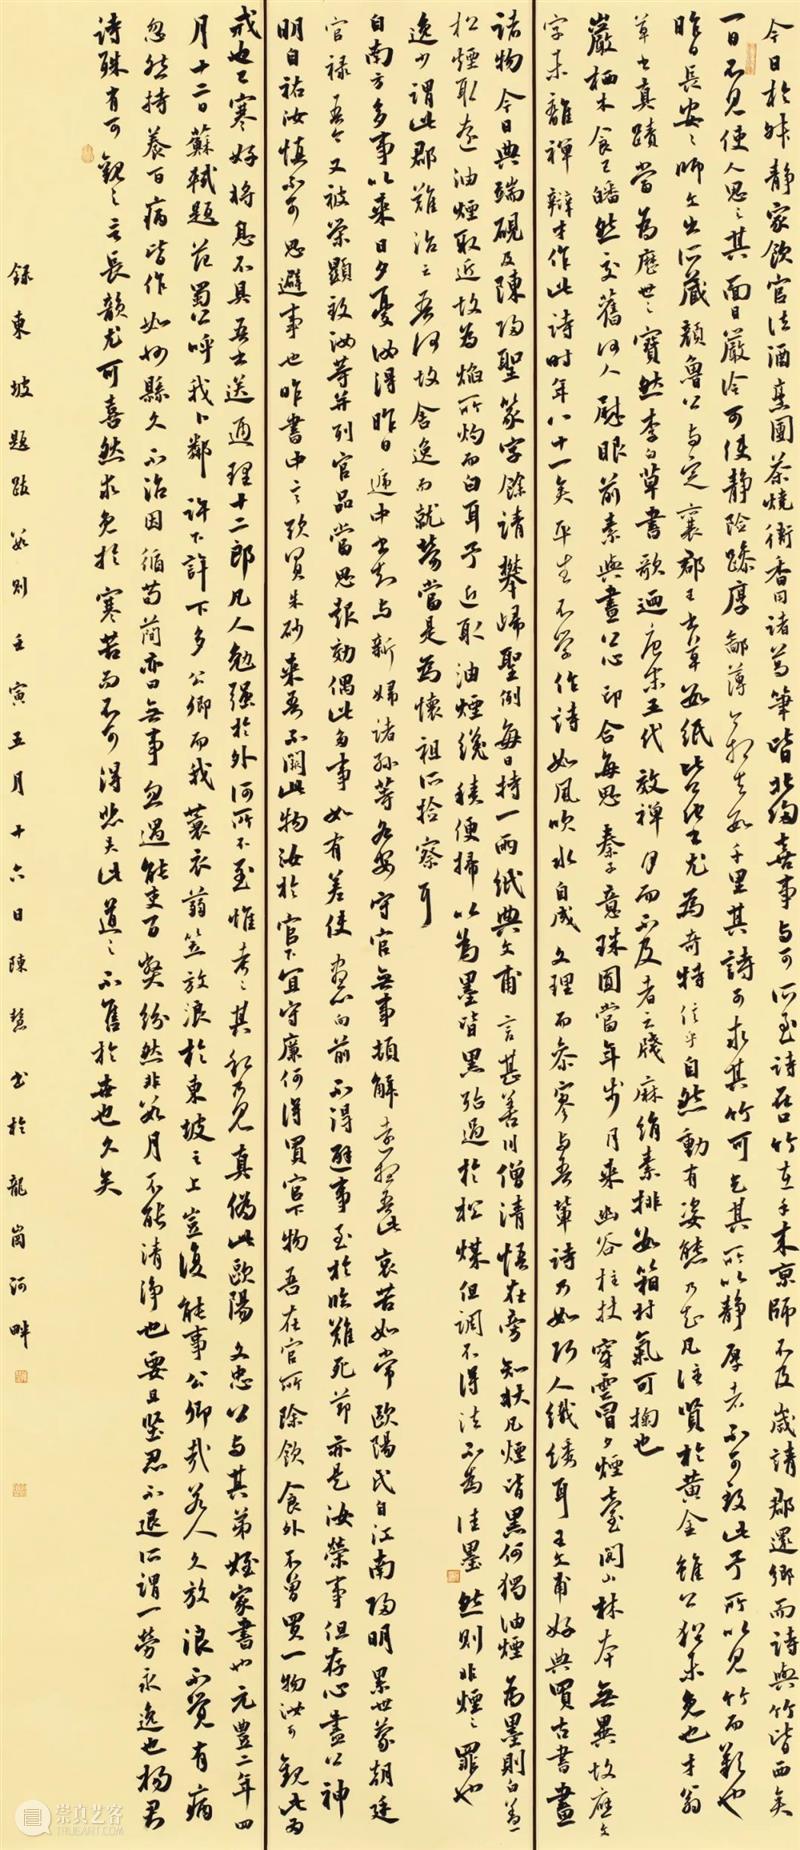 今日於叔静家飲官法酒烹團茶燒衙香用諸葛筆皆北歸喜事与可所至詩在口竹在手来京師不及歲請郡還鄉而詩與竹皆西矣
一日不見使人思之其面目嚴冷可使静險躁厚鄙薄今相去数千里其詩可求其竹可乞其所以静厚者不可致此予所以見竹而歎也
昨日長安安師文出所藏顏魯公与定襄郡王書草数紙比公他書尤為奇特信手自然動有姿態乃知瓦注賢於黄金雖公猶未免也才翁
草書真蹟當為歷世之寶然李白草書歌廼唐末五代效禪月而不及者云牋麻絹素排数箱村氣可掬也
巖栖木食已皤然交舊何人慰眼前素與晝公心印合每思秦子意珠圓當年步月来幽谷柱杖穿雲冒夕煙臺閣山林本無異故應文
字未離禪辯才作此詩时年八十一矣平生不學作詩如風吹水自成文理而参寥与吾輩詩乃如巧人織绣耳王文甫好典買古書畫
諸物今日典端硯及陳歸聖篆字餘請攀歸聖例每日持一兩紙典文甫言甚善川僧清悟在旁知狀凡煙皆黑何獨油煙為墨則白盖
松煙取遠油煙取近故為焰所灼而白耳予近取油煙纔積便掃以為墨皆黑殆過於松煤但調不得法不為佳墨然則非煙之罪也
逸少謂此郡難治云吾何故舍逸而就勞當是為懷祖所撿察耳
自南方多事以来日夕憂汝得昨日遞中書知与新婦諸孫等各安守官無事頓解遠想吾此哀苦如常歐陽氏自江南歸明累世蒙朝廷
官禄吾今又被榮顯致汝等并列官品當思報効偶此多事如有差使盡心向前不得避事至於臨難死節亦是汝榮事但存心盡公神
明自祐汝慎不可思避事也昨書中言欲買朱砂来吾不闕此物汝於官下宜守廉何得買官下物吾在官所除飲食外不曾買一物汝可觀此為
戒也已寒好将息不具吾書送通理十二郎凡人勉强於外何所不至惟考之其私乃見真偽此歐陽文忠公与其弟姪家書也元豊二年四
月十二日蘇軾題范蜀公呼我卜鄰許下許下多公卿而我蓑衣蒻笠放浪於東坡之上豈復能事公卿哉若人久放浪不覺有病
忽然持養百病皆作如州縣久不治因循苟簡亦曰無事忽遇能吏百弊紛然非数月不能清淨也要且堅忍不退所謂一勞永逸也楊君
詩殊有可觀之言長韻尤可喜然求免於寒苦而不可得悲夫此道之不售於世也久矣
録東坡題跋数則壬寅五月廿六日陳慧書於龍崗河畔
崇真艺客
TRUEART.COM